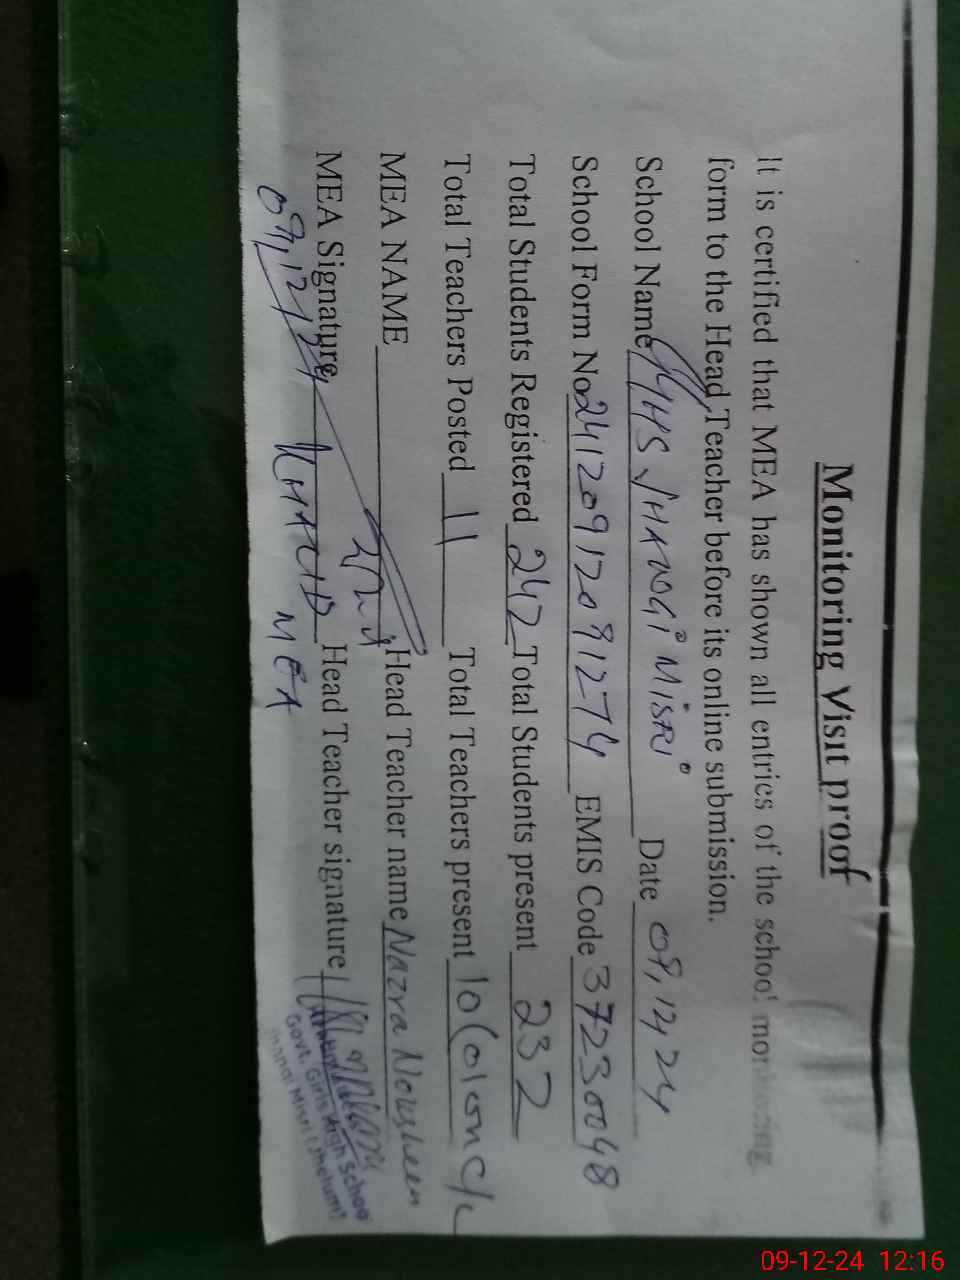 Monitoring Visit proof
It is certified that MEA has shown all entries of the school monitoring
form to the Head Teacher before its online submission.
School Name GGHS JHANGi MiSRi Date 09/12/24
School Form No 24120912081274 EMIS Code 37230048
Total Students Registered 242 Total Students present 232
Total Teachers Posted 11 Total Teachers present 10 (01 on C/L
MEA NAME Head Teacher name Nazra Nousheen
MEA Signature KHALID Head Teacher signature
09/12/24 MEA
Govt. Girls High School
Jhangi Misri (Jhelum)
09-12-24 12:16